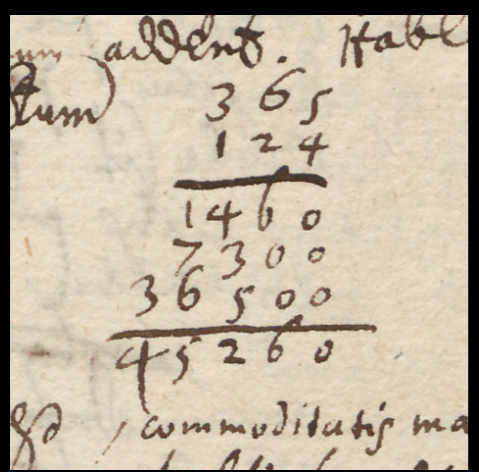 addend. Habe
tum
365
124
1460
7300
36500
45260
commoditatis ma